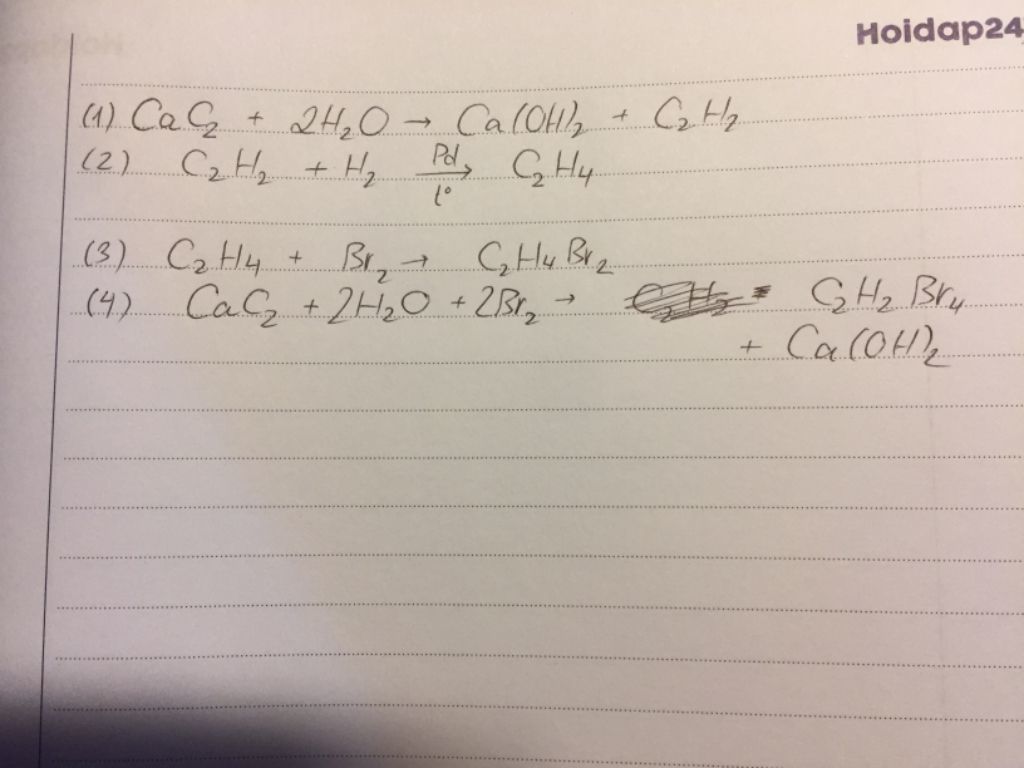 Hoidap24
(1) CaC₂ + 2H₂O → Ca(OH)₂ + C₂H₂
(2) C₂H₂ + H₂ →
Pd
t°
C₂H₄
(3) C₂H₄ + Br₂ → C₂H₄Br₂
(4) CaC₂ + 2H₂O + 2Br₂ → C₂H₂Br₄
+ Ca(OH)₂